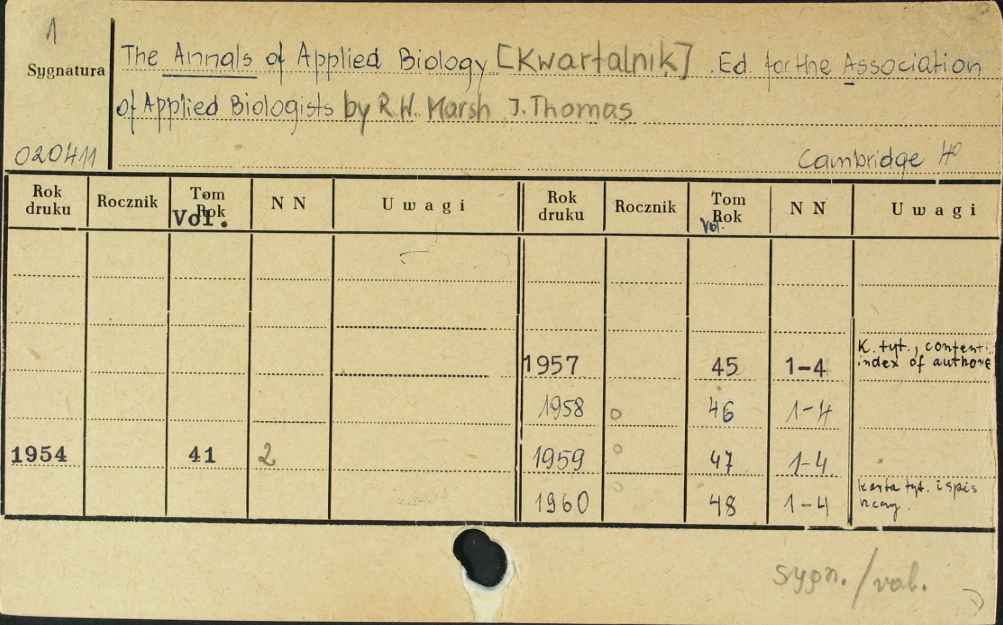 1
Sygnatura
The Annals of Applied Biology [Kwartalnik]. Ed. for the Association
of Applied Biologists by R.W. Marsh J. Thomas
020411
Cambridge 4º
Rok druku Rocznik Tom Rok Vol. NN Uwagi Rok druku Rocznik Tom Rok Vol. NN Uwagi
1957 45 1-4 K. tyt., content. index of authors
1958 46 1-4
1954 41 2 1959 47 1-4
1960 48 1-4 karta tyt. i spis
sygn./vol.